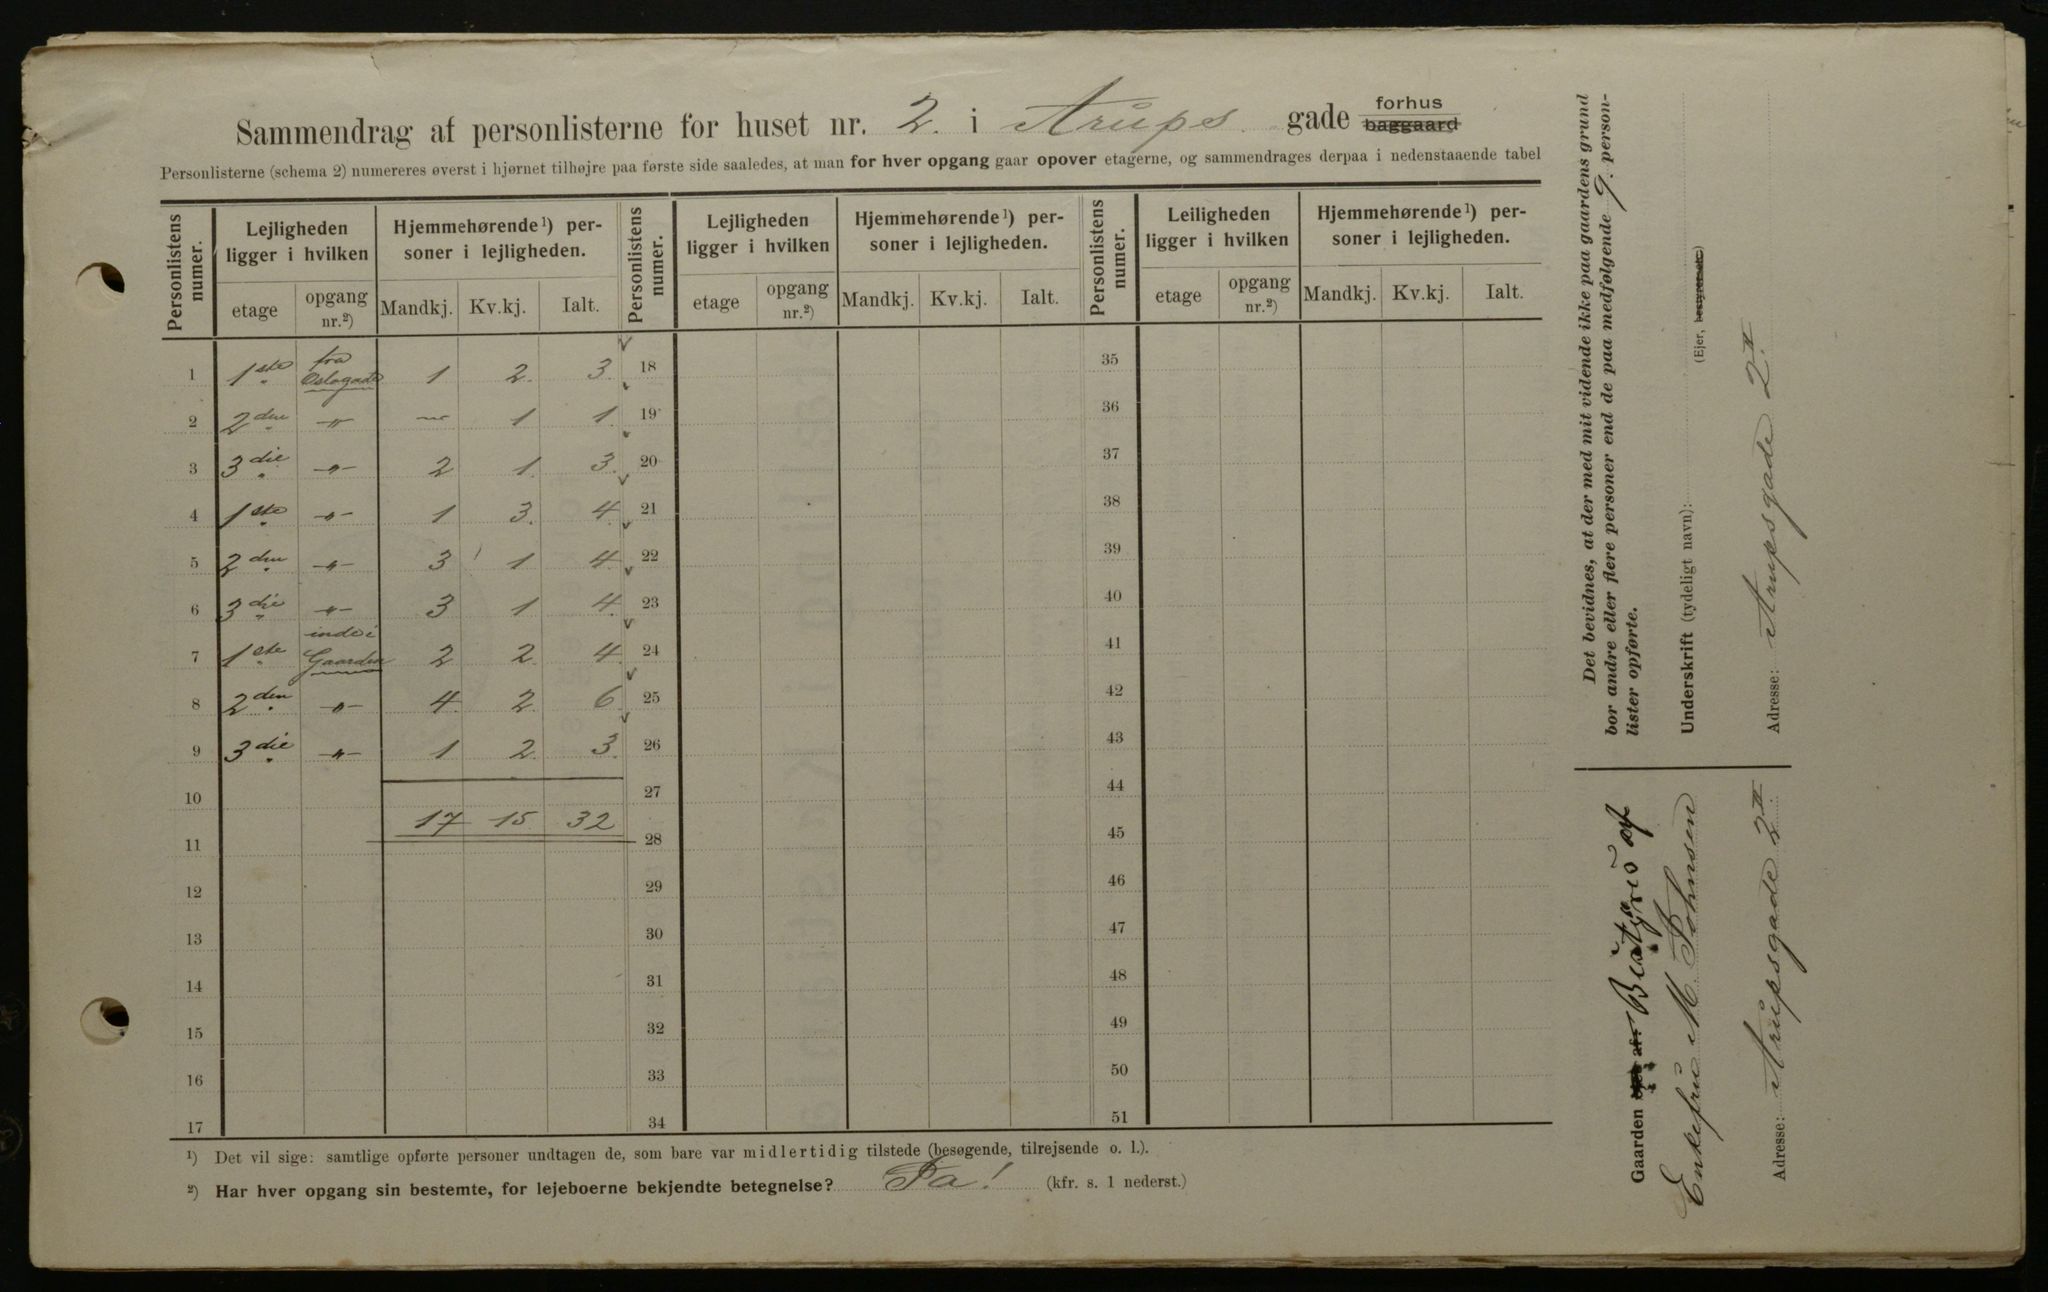 Sammendrag af personlisterne for huset nr. 2. i Arups gade forhus baggaard
Personlisterne (schema 2) numereres øverst i hjørnet tilhøjre paa første side saaledes, at man for hver opgang gaar opover etagerne, og sammendrages derpaa i nedenstaaende tabel
Personlistens numer. Lejligheden ligger i hvilken Hjemmehørende¹) personer i lejligheden. Personlistens numer. Lejligheden ligger i hvilken Hjemmehørende¹) personer i lejligheden. Personlistens numer. Leiligheden ligger i hvilken Hjemmehørende¹) personer i lejligheden.
etage opgang nr.²) Mandkj. Kv.kj. Ialt. etage opgang nr.²) Mandkj. Kv.kj. Ialt. etage opgang nr.²) Mandkj. Kv.kj. Ialt.
1 1ste fra Oslogade 1 2. 3. 18 35
2 2den -„- — 1 1. 19 36
3 3die -„- 2 1. 3. 20 37
4 1ste -„- 1 3. 4. 21 38
5 2den -„- 3 1 4. 22 39
6 3die -„- 3 1 4. 23 40
7 1ste inde i Gaarden 2 2. 4. 24 41
8 2den -„- 4. 2. 6. 25 42
9 3die -„- 1 2. 3. 26 43
10 27 44
17 15 32
11 28 45
12 29 46
13 30 47
14 31 48
15 32 49
16 33 50
17 34 51
¹) Det vil sige: samtlige opførte personer undtagen de, som bare var midlertidig tilstede (besøgende, tilrejsende o. l.).
²) Har hver opgang sin bestemte, for lejeboerne bekjendte betegnelse? Ja! (kfr. s. 1 nederst.)
Det bevidnes, at der med mit vidende ikke paa gaardens grund
bor andre eller flere personer end de paa medfølgende 9. person-
lister opførte.
Underskrift (tydeligt navn):
(Ejer, bestyrer etc.)
Adresse: Arupsgade 2II
Gaarden ejes af: Bestyres af
Enkefru M Johnsen
Adresse: Arupsgade 2II